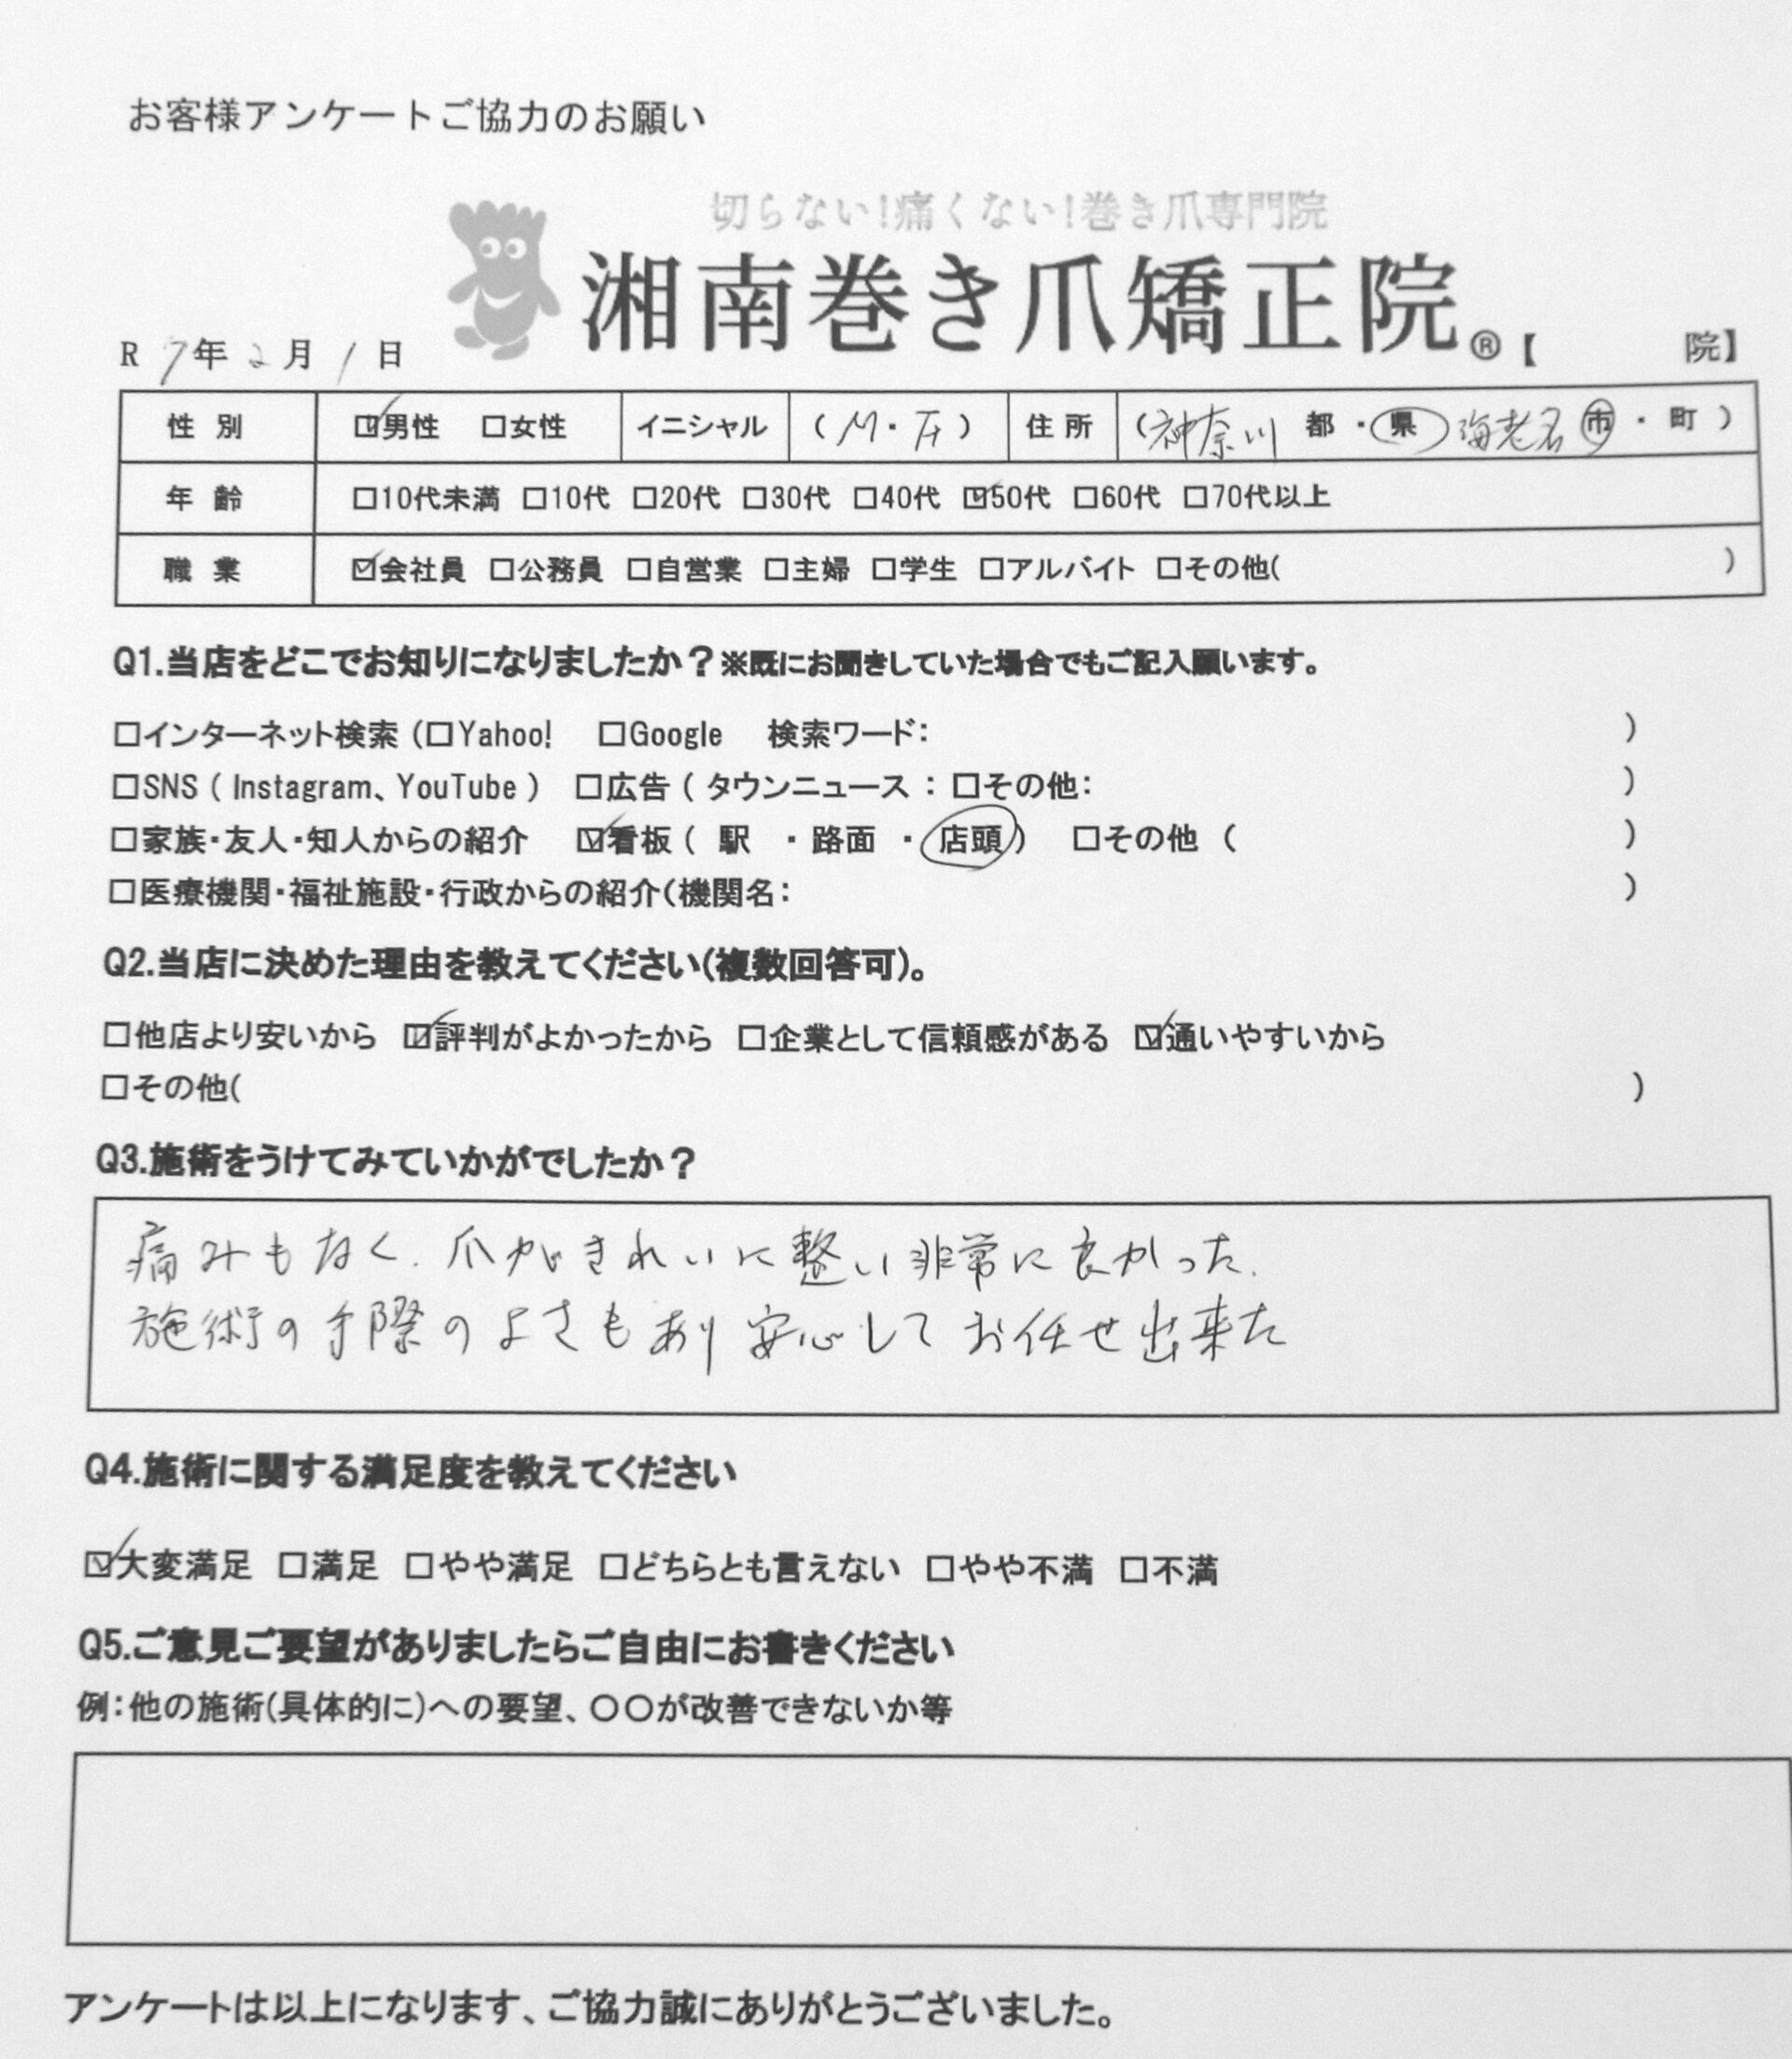 お客様アンケートご協力のお願い
切らない!痛くない!巻き爪専門院
湘南巻き爪矯正院®【 院】
R 7年 2月 1日
性別 ☑男性 □女性 イニシャル (M・ ) 住所 (神奈川 都・県 海老名 市・町 )
年齢 □10代未満 □10代 □20代 □30代 □40代 ☑50代 □60代 □70代以上
職業 ☑会社員 □公務員 □自営業 □主婦 □学生 □アルバイト □その他( )
Q1.当店をどこでお知りになりましたか？※既にお聞きしていた場合でもご記入願います。
□インターネット検索 (□Yahoo! □Google 検索ワード: )
□SNS ( Instagram、YouTube ) □広告 ( タウンニュース : □その他: )
□家族・友人・知人からの紹介 ☑看板 ( 駅 ・ 路面 ・ 店頭 ) □その他 ( )
□医療機関・福祉施設・行政からの紹介(機関名: )
Q2.当店に決めた理由を教えてください(複数回答可)。
□他店より安いから ☑評判がよかったから □企業として信頼感がある ☑通いやすいから
□その他( )
Q3.施術をうけてみていかがでしたか？
痛みもなく、爪がきれいに整い非常に良かった.
施術の手際のよさもあり安心してお任せ出来た
Q4.施術に関する満足度を教えてください
☑大変満足 □満足 □やや満足 □どちらとも言えない □やや不満 □不満
Q5.ご意見ご要望がありましたらご自由にお書きください
例:他の施術(具体的に)への要望、〇〇が改善できないか等
アンケートは以上になります、ご協力誠にありがとうございました。